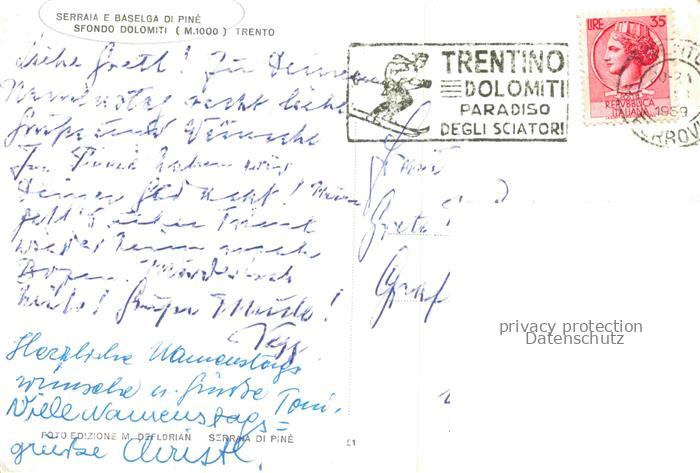 SERRAIA E BASELGA DI PINÈ
SFONDO DOLOMITI ( M.1000 ) TRENTO
TRENTINO
DOLOMITI
PARADISO
DEGLI SCIATORI
LIRE 35
REPVBBLICA
ITALIANA
1959
FERROVIA
Liebe Gretl! Zu Deinem
Namenstag recht liebe
Grüße und Wünsche
In Piné haben wir
Deiner gedacht!
geht's über Trient
wieder heim nach
Bozen.
heiß! Grüße
Herzliche Namenstags
wünsche u. Grüße Toni.
Viele Namenstags=
grüße Christl.
Gretl
Graf
privacy protection
Datenschutz
FOTO EDIZIONE M. DEFLORIAN SERRAIA DI PINÈ